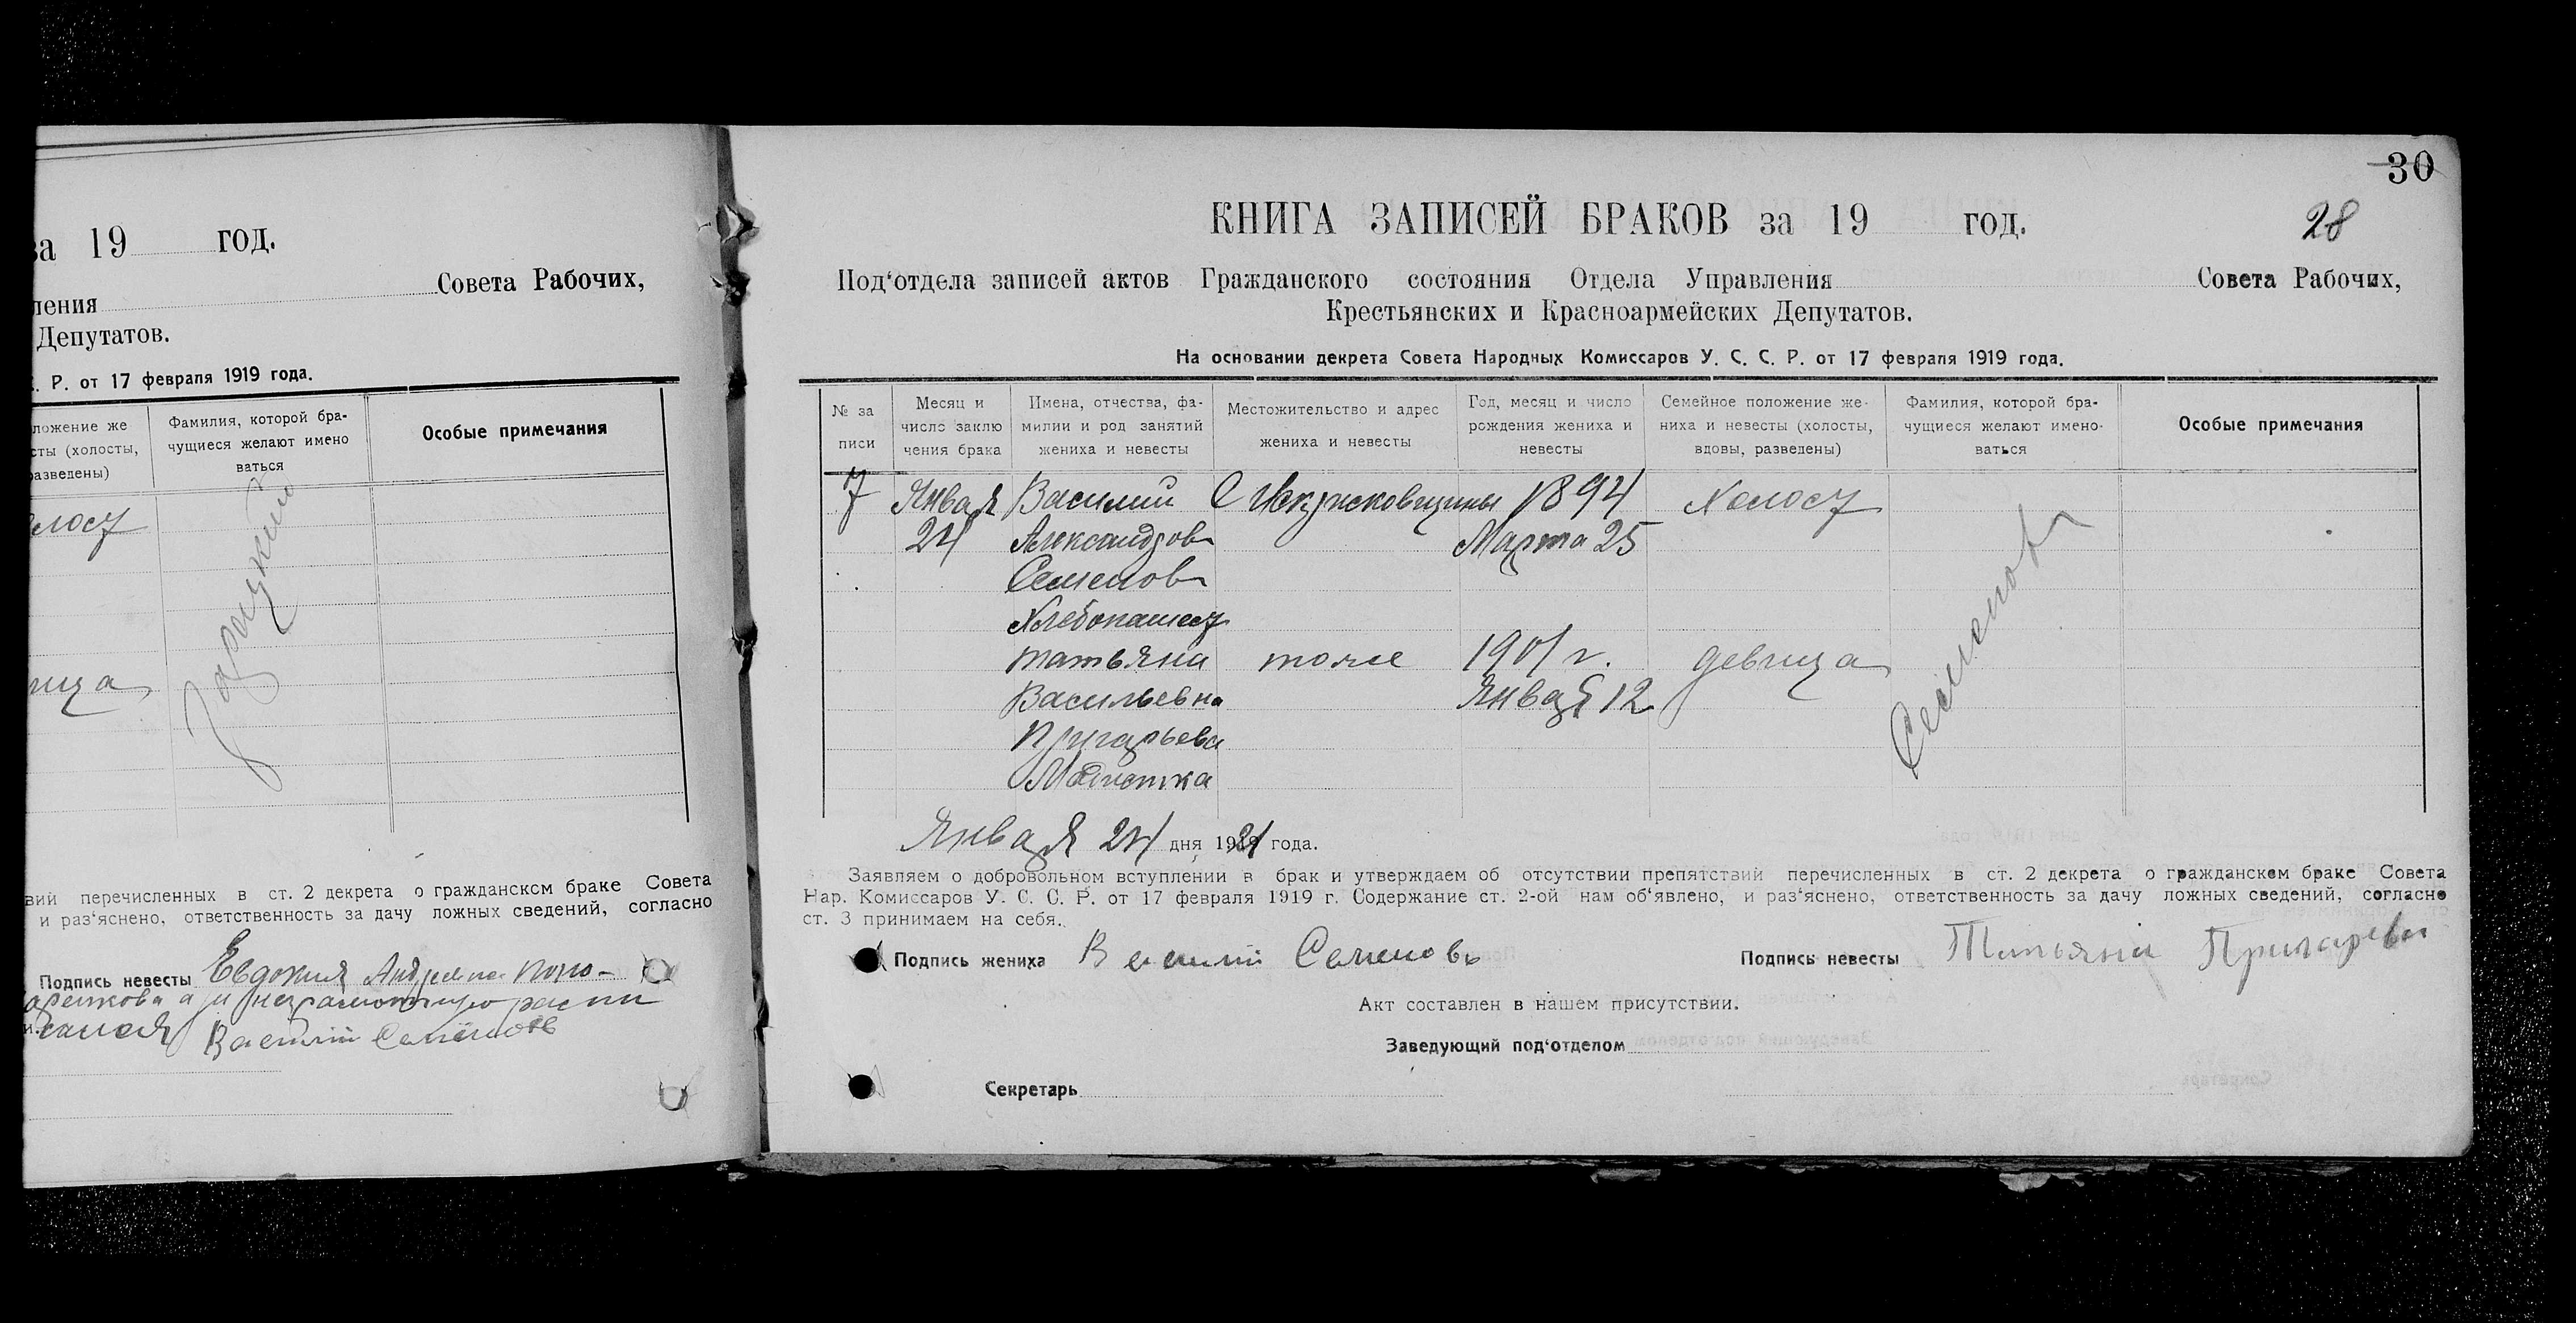 за 19 год.
ления Совета Рабочих,
Депутатов.
С. Р. от 17 февраля 1919 года.
ложение же
сты (холосты,
разведены)
Фамилия, которой бра-
чущиеся желают имено
ваться
Особые примечания
лост
ица
вий перечисленных в ст. 2 декрета о гражданском браке Совета
и раз‘яснено, ответственность за дачу ложных сведений, согласно
Подпись невесты Евдокия
Василий Семенов
30
28
КНИГА ЗАПИСЕЙ БРАКОВ за 19 год.
Под‘отдела записей актов Гражданского состояния Отдела Управления Совета Рабочих,
Крестьянских и Красноармейских Депутатов.
На основании декрета Совета Народных Комиссаров У. С. С. Р. от 17 февраля 1919 года.
№ за
писи
Месяц и
число заклю
чения брака
Имена, отчества, фа-
милии и род занятий
жениха и невесты
Местожительство и адрес
жениха и невесты
Год, месяц и число
рождения жениха и
невесты
Семейное положение же-
ниха и невесты (холосты,
вдовы, разведены)
Фамилия, которой бра-
чущиеся желают имено-
ваться
Особые примечания
7 Января Василий С Искрисковщины 1894 Холост
24 Александров Марта 25
Семенов
Хлебопашест
Татьяна тоже 1901 г. девица
Васильевна Января 12
Пригарьева
Семенов
Января 24 дня 1921 года.
Заявляем о добровольном вступлении в брак и утверждаем об отсутствии препятствий перечисленных в ст. 2 декрета о гражданском браке Совета
Нар. Комиссаров У. С. С. Р. от 17 февраля 1919 г. Содержание ст. 2-ой нам об‘явлено, и раз‘яснено, ответственность за дачу ложных сведений, согласно
ст. 3 принимаем на себя.
Подпись жениха Василий Семеновъ Подпись невесты Татьяна Пригарева
Акт составлен в нашем присутствии.
Заведующий под‘отделом
Секретарь